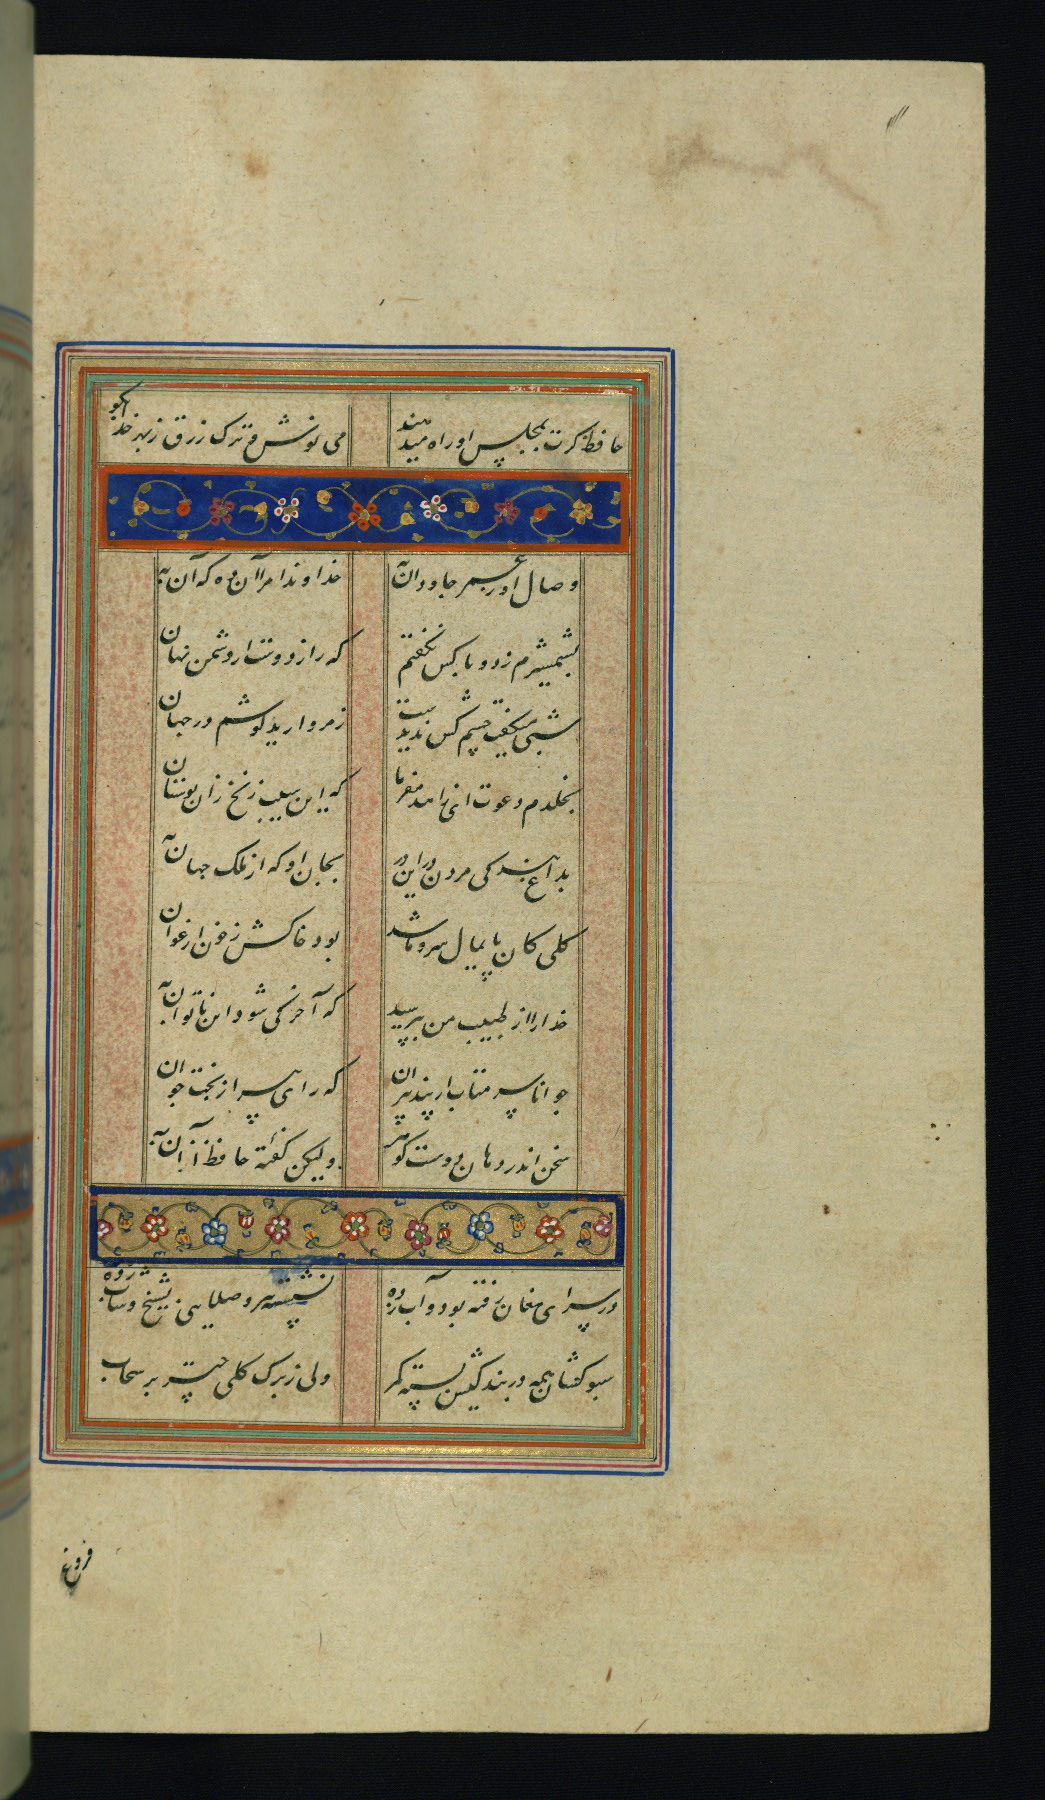 حافظ کرت بمجلس او راه میدهند می نوش و ترک زرق ز بهر خدا بگو
وصال او ز عمر جاودان به خداوندا مرا آن ده که آن به
بشمشیرم زد و با کس نگفتم که راز دوست از دشمن نهان به
شبی میگفت چشم کس ندیدست ز مروارید گوشم در جهان به
بخلدم دعوت ای زاهد مفرما که این سیب زنخ زان بوستان به
بداغ بندگی مردن درین در بجان او که از ملک جهان به
کلی کان پایمال سرو ما شد بود خاکش ز خون ارغوان به
خدا را از طبیب من بپرسید که آخر کی شود این ناتوان به
جوانا سر متاب از پند پیران که رای پیر از بخت جوان به
سخن اندر دهان دوست گوهر ولیکن گفته حافظ از آن به
در سرای مغان رفته بود و آب زده نشسته پیر و صلایی بشیخ و شاب زده
سبو کشان همه در بندگیش بسته کمر ولی ز ترک کله چتر بر سحاب
فروغ